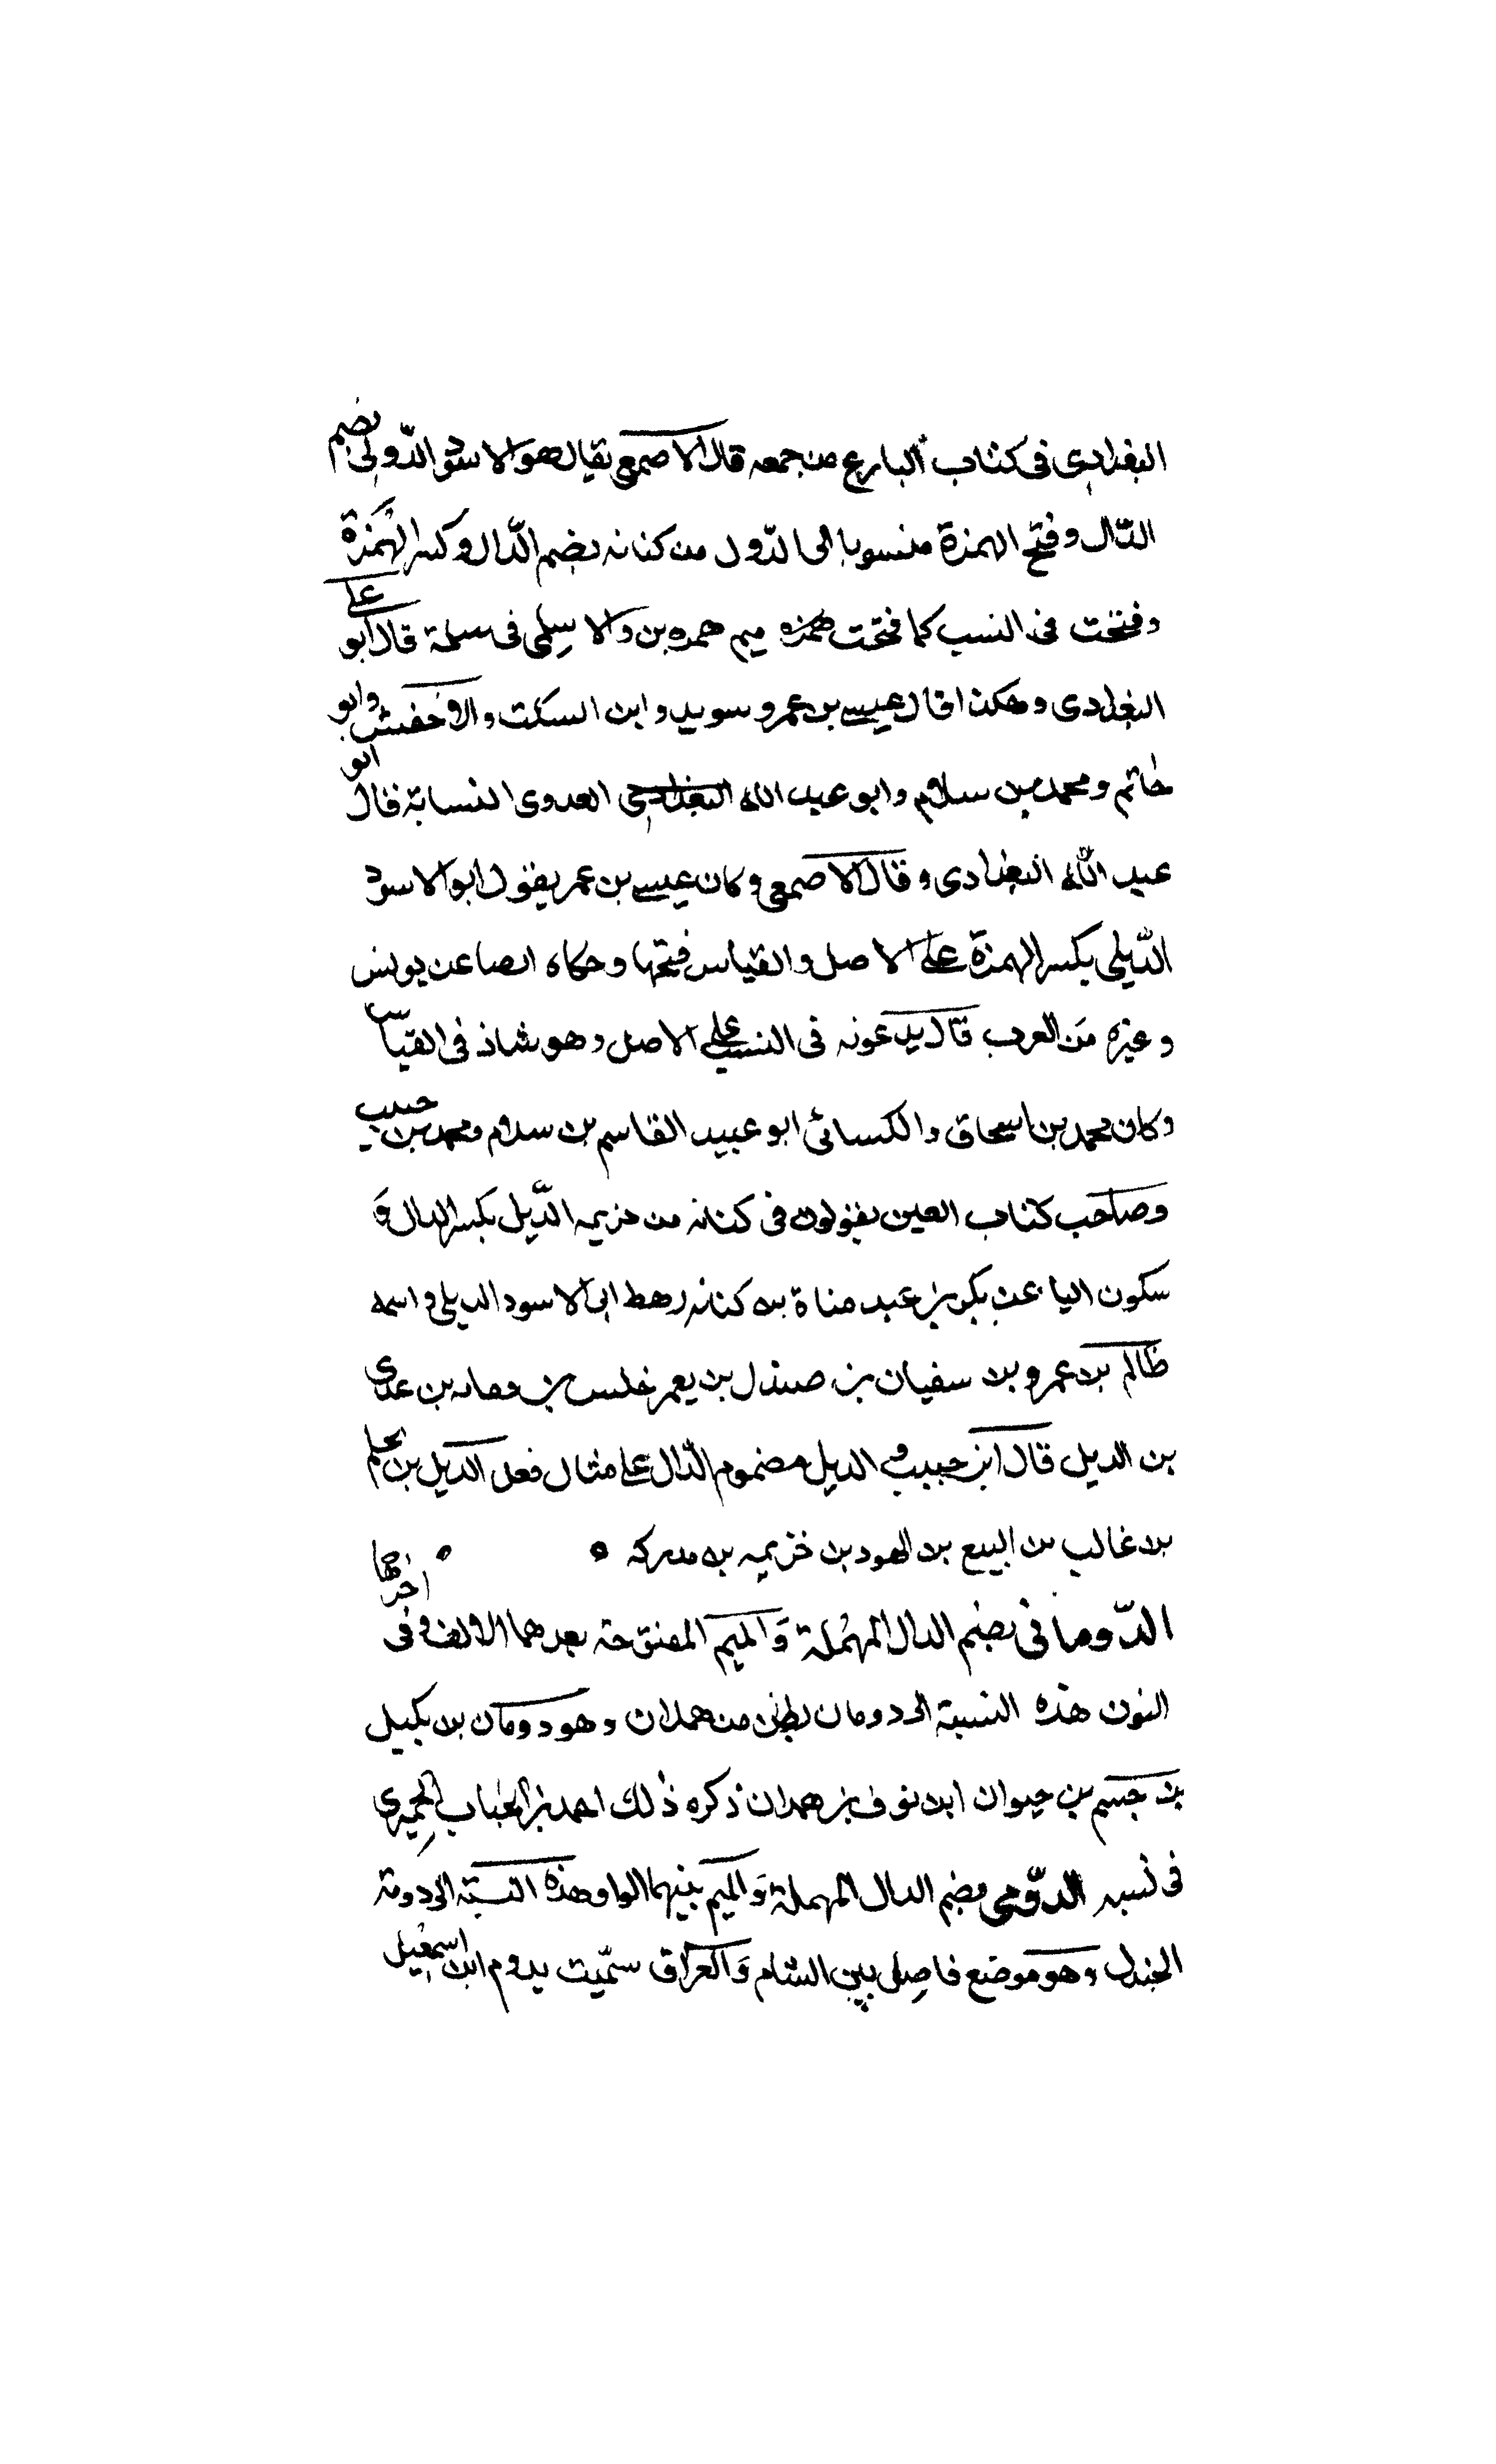 البغدادى فى كتاب البارع من جمعه قال الاصمعى يقال هو الاسود الدّولى بضم
الدّال وفتح الهمزة منسوبا الى الدّول من كنانه بضم الدّال وكسر الهمزة
وفتحت فى النسب كما فتحت همزه ميم همره بن والا سِلمى فى سلمة قال ابو على
البغدادى وهكذا قال عيسى بن عمرو سويد وابن السكت والاخفش وابو
حاتم ومحمد بن سلام وابو عبد الله البغدادى العدوى النسابة قال ابو
عبد الله البغدادى وقال الاصمعى وكان عيسى بن عمر يقول ابو الاسود
الدّيلى بكسر الهمزة على الاصل والقياس فتحها وحكاه ايضا عن يونس
وغيره مَن العرب قال يدعونه فى النسب على الاصل وهو شاذ فى القياس
وكان محمد بن اسحاق والكسائى ابو عبيد القاسم بن سلام ومحمد بن حبيب
وصاحب كتاب العين يقولون فى كنانه من خزيمه الدّيل بكسر الدال وَ
سكون اليا عن بكر بن عبد مناة بن كنانه رهط ابى الاسود الديلى واسمه
ظالم بن عمرو بن سفيان بن صندل بن يعمر خلس بن نفاثه بن عدى
بن الديل قال ابن حبيب وفى الديل مضموم الدّال على مثال فعل الديل بن محلم
بن غالب بن الييع بن الهود بن خزيمه بن مدركه
الدّومانى بضم الدال المهْملة وَالميم المفتوحة بعدهما الالف وفى اخرها
النون هذه النسبة الى دومان بطن من همدان وهو دومان بن بكيل
بن جسم بن حيوان ابن نوف بن همدان ذكره ذٰلك احمد بن الحباب الحِميرى
فى نسبه الدّومى بضم الدال المهملة وَالميم بينهما الواو هذه النسبة الى دومة
الجندل وهو موضع فاصِل بين الشام وَالعراق سمّيت بدوم ابن اسمعيل